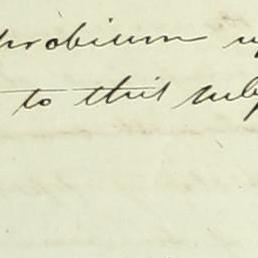 probium u
to this sub